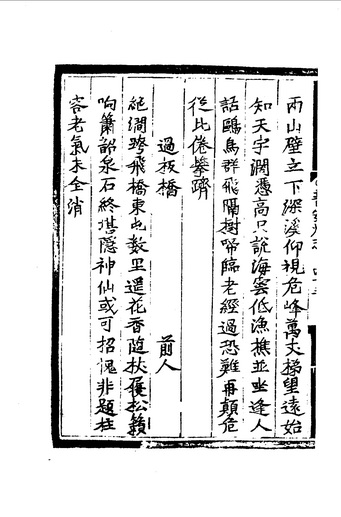 兩山壁立下深溪仰視危峰萬丈梯望遠始
知天宇濶憑高只說海雲低漁樵並坐逢人
話鷗鳥群飛隔樹啼臨老經過恐難再顛危
從此倦攀躋
過板橋　前人
絕澗跨飛橋東山数里遥花香随杖屨松籟
响簫韶泉石終堪隱神仙或可招愧非題柱
客老氣未全消